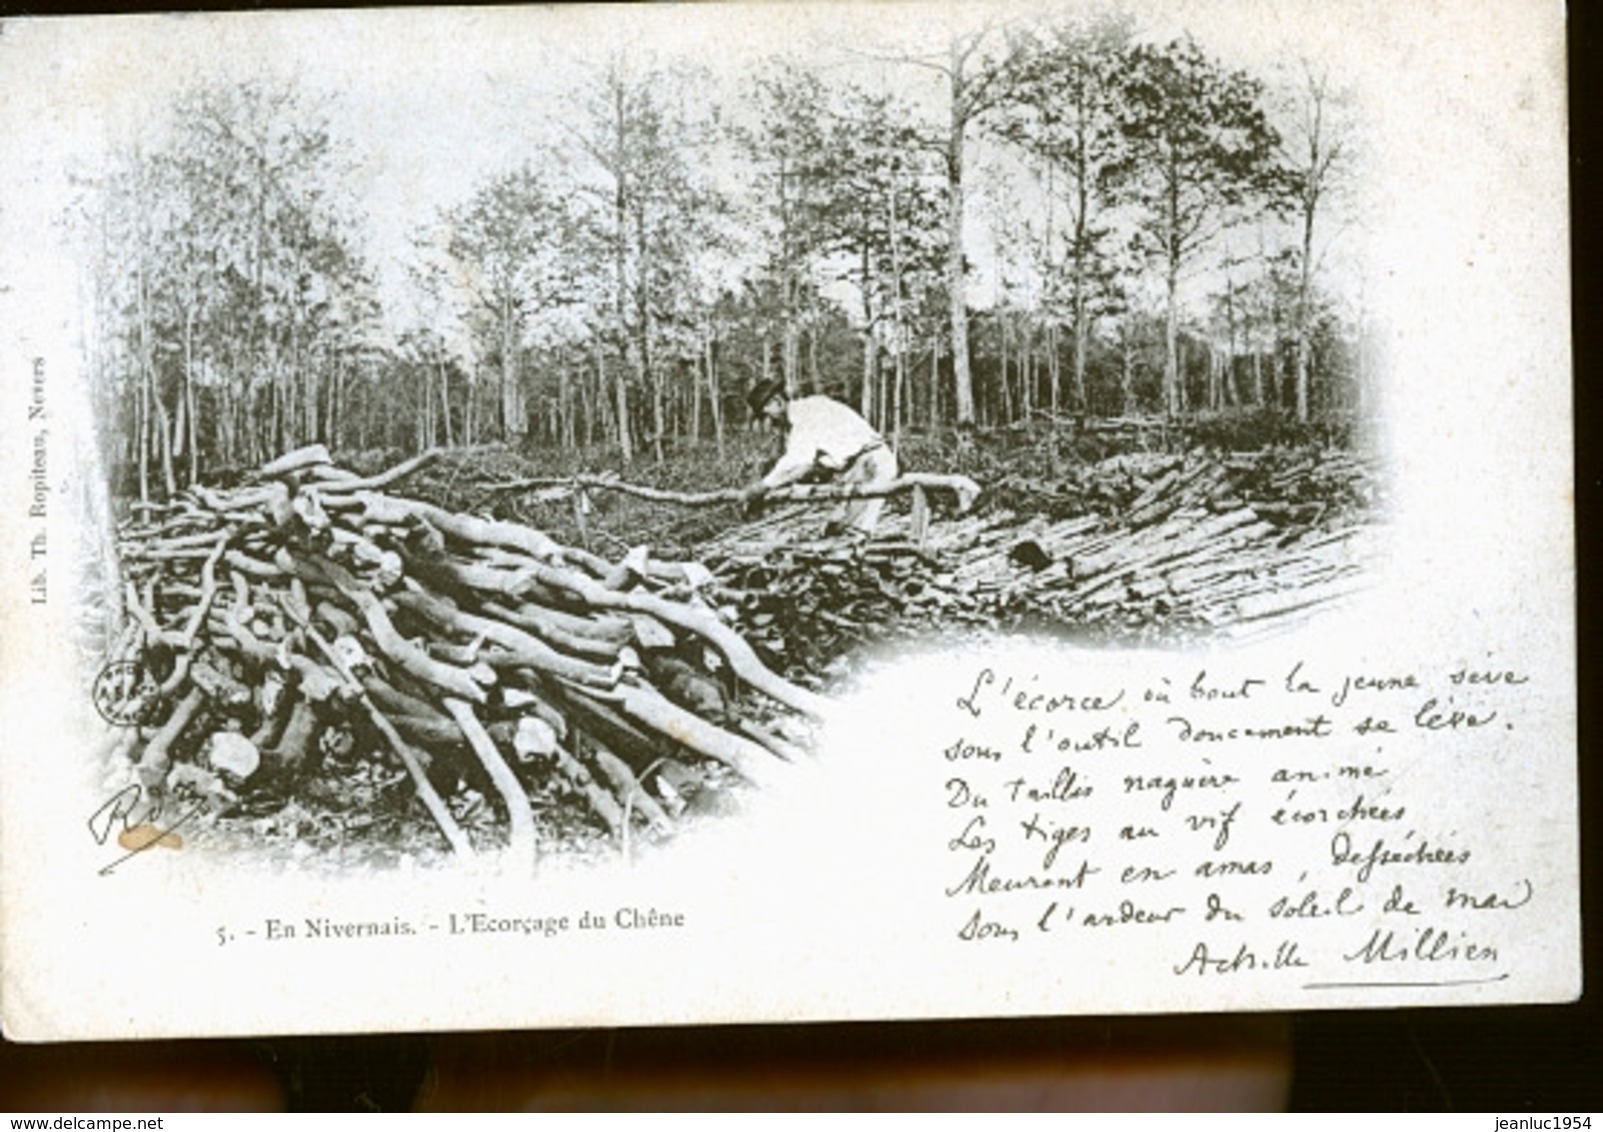 Lib. Th. Ropiteau, Nevers
L'écorce où bout la jeune sève
sous l'outil doucement se lève.
Du taillis naguère animé
Les tiges au vif écorchées
Meurent en amas, desséchées
sous l'ardeur du soleil de mai
Achille Millien
5. - En Nivernais. - L'Ecorçage du Chêne
www.delcampe.net
jeanluc1954